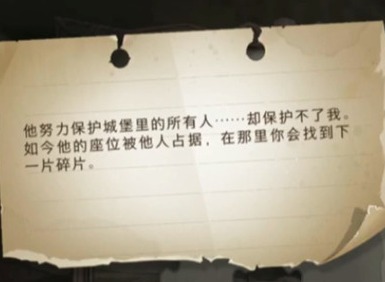 他努力保护城堡里的所有人……却保护不了我。
如今他的座位被他人占据，在那里你会找到下
一片碎片。